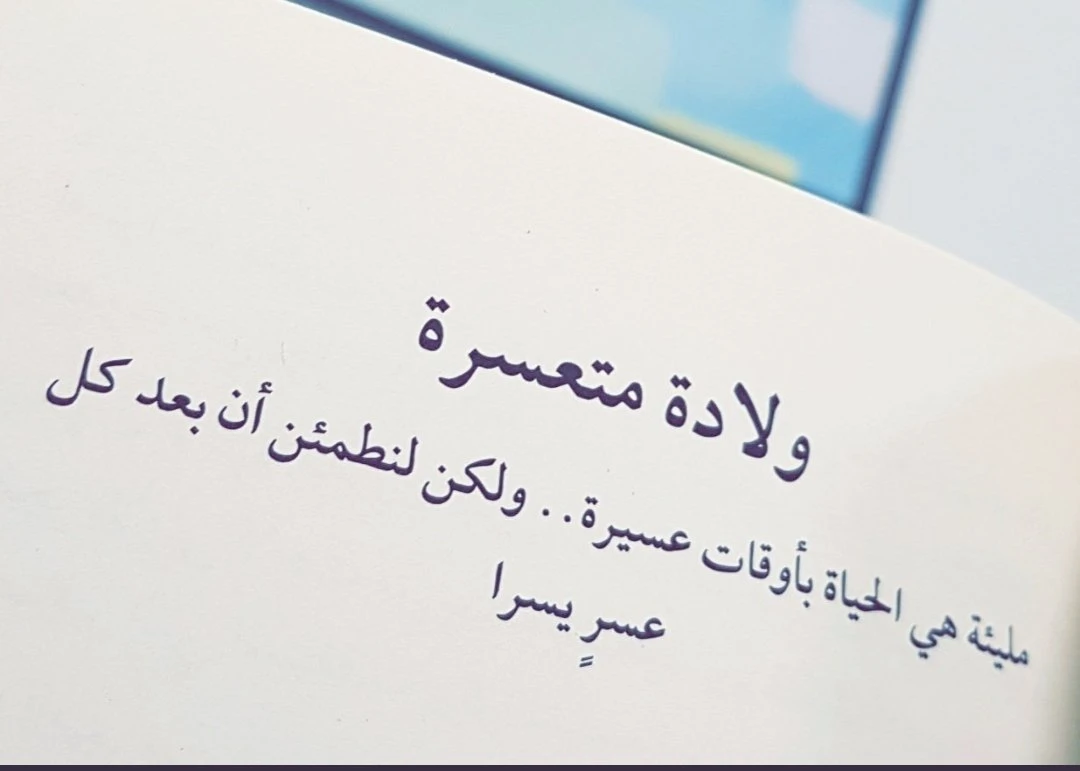 ولادة متعسرة
مليئة هي الحياة بأوقات عسيرة.. ولكن لنطمئن أن بعد كل
عسرٍ يسرا